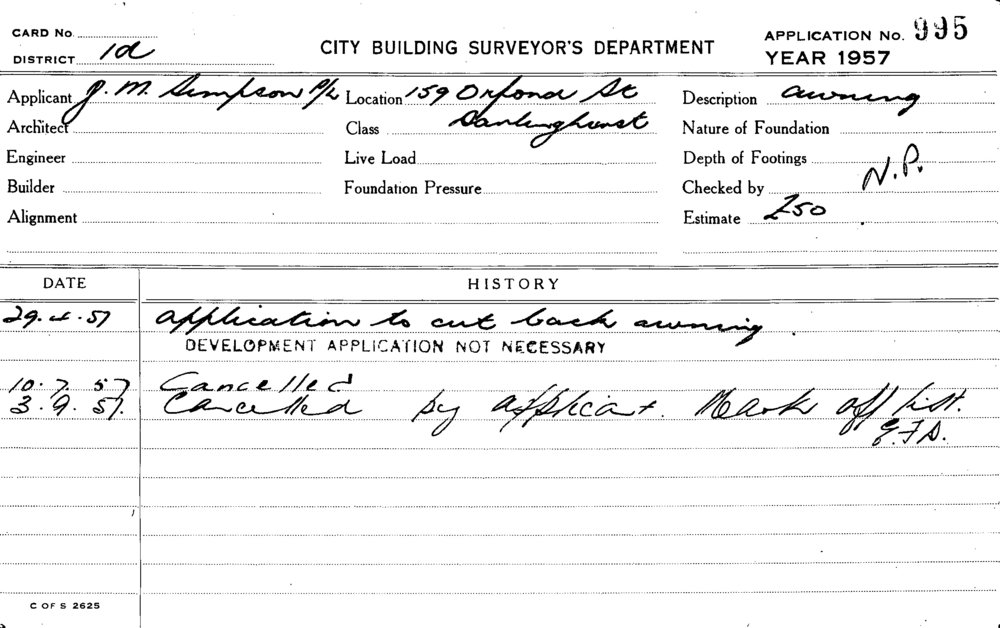 CARD No.
DISTRICT 1d
CITY BUILDING SURVEYOR'S DEPARTMENT
APPLICATION No. 995
YEAR 1957
Applicant J. M. Simpson P/L Location 159 Orfond St Description awning
Architect Class Darlinghurst Nature of Foundation
Engineer Live Load Depth of Footings
Builder Foundation Pressure Checked by N.P.
Alignment Estimate £50
DATE HISTORY
29.4.57 application to cut back awning.
DEVELOPMENT APPLICATION NOT NECESSARY
10.7.57 Cancelled
3.9.57. Cancelled by applicant. Mark off list.
C OF S 2625